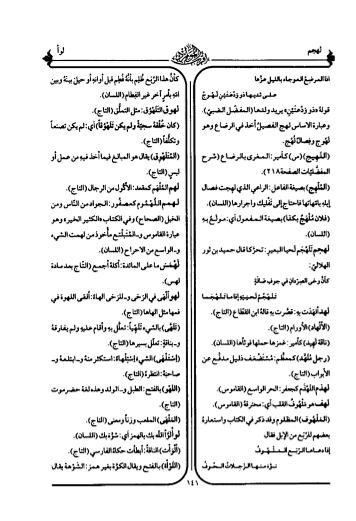 لهجم
لوأ
اذا المرضع العوجاء بالليل عزّها
على ثديها ذو ودعتين لهوج
قوله «ذو ودعتين» يريد ولدها (المفضّل الضبيّ).
وعبارة الاساس لهج الفصيلُ أخذ في الرضاع وهو
لهوج وفصالٌ لُهُج.
(اللَّهِيج) (س) كأمير: المغرى بالرضاع (شرح
المفضّليات الصفحة ٢١٨).
(المُلْهِج) بصيغة الفاعل: الراعي الذي لهجت فصال
إبله بامّهاتها فاحتاج إلى تفليك واجرارها (اللسان).
(فلان مُلْهَج بكذا) بصيغة المفعول أي: مولَع به
(اللسان).
لهجم تَلَهْجَم لَحيا البعير: تحرّكا قال حميد بن ثور
الهلاليّ:
كأنّ وحى الصِرْدان في جوف ضالةٍ
تلهجُم لحييه إذا ما تلهجما
لهد ألهَدتُ به: قصّرت به قاله ابن القطّاع (التاج).
(الأَلْهاد) الأورام (التاج).
(ناقة لهيد) كأمير: غمزها حملها فوثأها (اللسان).
(رجل مُلَهَّد) كمعظّم: مستضعَف ذليل مدفَّع عن
الأبواب (التاج).
لهذم اللَّهْذَم كجعفر: الحر الواسع (القاموس).
لهف هو مَلْهوف القلب أي: محترقة (القاموس).
(المَلْهوف) المظلوم وقد ذكر في الكتاب واستعارة
بعضهم للرُبَع من الإبل فقال
إذا دعاها الرُبَع الملهوف
نوّه منها الزجلات الحوف
كأنّ هذا الرُبَع ظُلِم بأنّه فُطِم قبل أوانه أو حيل بينه وبين
امّه بأمر آخر غير الفطام (اللسان).
لهوق (التَلَهْوُق): مثل التملّق (التاج).
(كان خُلُقه سجيّة ولم يكن تَلَهْوُقاً) أي: لم يكن تصنعاً
وتكلّفاً (التاج).
(المُتَلَهْوِق) يقال هو المبالغ فيما أخذ فيه من عمل أو
لبس (التاج).
لهم المِلْهَم كمقعد: الأكول من الرجال (التاج).
لهسم اللُهْسُوم كعصفور: الجواد من الناس ومن
الخيل (الصحاح) وفي الكتاب «الكثير الخير» وهو
عبارة القاموس و_المبتلَع مأخوذ من لهمت الشيء
و_الواسع من الاحراح (اللسان).
لهمس ما على المائدة: أكله أجمع (التاج بعد مادة
لهس).
لهو ألْهَى في الرَحَى و_للرَحى الهاءً: ألقى اللهوة في
فمها مثل الهاها (التاج).
(تَلَهَّى) بالشيء تَلَهِّياً: تعلّل به وأقام عليه ولم يفارقه
و_بناقة: تعلّل بسيرها (التاج).
(اِسْتَلْهَى) الشيء اِسْتِلْهاءً: استكثر منه و_ابتلعه و_
صاحبَه: انتظره (التاج).
(اللَهْو) بالفتح: الطبل و_الولد وهذه لغة حضرموت
(التاج).
(المَلْهَى) الملعب وزناً ومعنى (التاج).
لوأ لَوَأَ اللّه بك بالهمز أي: شوّه بك (اللسان).
(أَلْوَأَت) الناقة: أبطأت حكاة الفارسيّ (التاج).
(اللَوْءَة) بالفتح ويقال اللوّة بغير همز: الشَوْهة يقال
١٤١